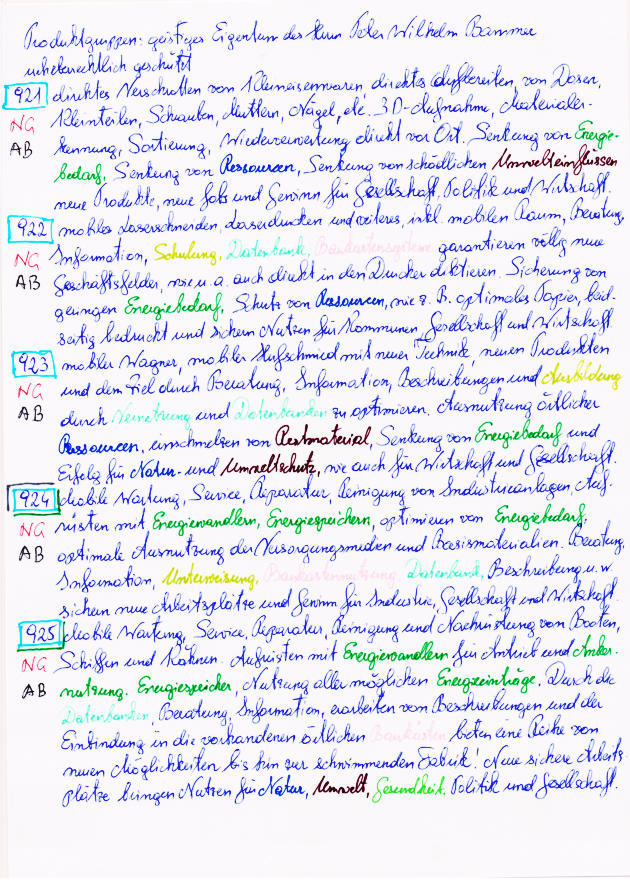 Produktgruppen: geistiges Eigentum des Herrn Peter Wilhelm Bammer
urheberrechtlich geschützt
921 direktes Verschrotten von Kleineisenwaren, direktes Aufbereiten, von Dosen,
NG Kleinteilen, Schrauben, Muttern, Nägel, etc. 3D-Aufnahme, Materialer-
AB kennung, Sortierung, Wiederverwertung direkt vor Ort. Senkung von Energie-
bedarf, Senkung von Ressourcen, Senkung von schädlichen Umwelteinflüssen
neue Produkte, neue Jobs und Gewinn für Gesellschaft, Politik und Wirtschaft.
922 mobiles Laserschneiden, Laserdrucken und weiteres, inkl. mobilen Raum, Beratung,
NG Information, Schulung, Datenbank, Baukastensysteme garantieren völlig neue
AB Geschäftsfelder, wie u. a. auch direkt in den Drucker diktieren. Sicherung von
geringen Energiebedarf, Schutz von Ressourcen, wie z. B. optimales Papier, beid-
seitig bedruckt und sichern Nutzen für Kommunen, Gesellschaft und Wirtschaft.
923 mobiler Wagner, mobiler Hufschmied mit neuer Technik, neuen Produkten
NG und dem Ziel durch Beratung, Information, Beschreibungen und Ausbildung
AB durch Vernetzung und Datenbanken zu optimieren. Ausnutzung örtlicher
Ressourcen, umschmelzen von Restmaterial, Senkung von Energiebedarf und
Erfolg für Natur- und Umweltschutz, wie auch für Wirtschaft und Gesellschaft.
924 Mobile Wartung, Service, Reparatur, Reinigung von Industrieanlagen, Auf-
NG rüsten mit Energiewandlern, Energiespeichern, optimieren von Energiebedarf,
AB optimale Ausnutzung der Versorgungsmedien und Basismaterialien. Beratung,
Information, Unterweisung, Baukastennutzung, Datenbank, Beschreibung u. w.
sichern neue Arbeitsplätze und Gewinn für Industrie, Gesellschaft und Wirtschaft.
925 Mobile Wartung, Service, Reparatur, Reinigung und Nachrüstung von Booten,
NG Schiffen und Kähnen. Aufrüsten mit Energiewandlern für Antrieb und Anker-
AB nutzung. Energiespeicher, Nutzung aller möglichen Energieeinträge. Durch die
Datenbanken, Beratung, Information, erarbeiten von Beschreibungen und der
Einbindung in die vorhandenen örtlichen Baukästen bieten eine Reihe von
neuen Möglichkeiten bis hin zur schwimmenden Fabrik! Neue sichere Arbeits
plätze bringen Nutzen für Natur, Umwelt, Gesundheit, Politik und Gesellschaft.